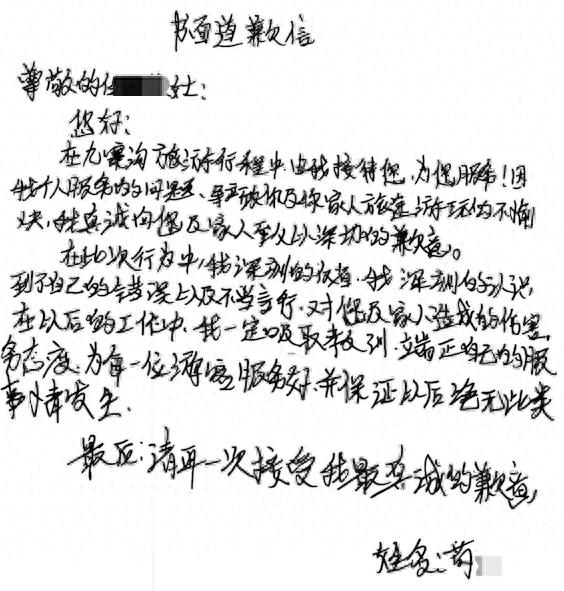 书面道歉信
尊敬的 女士:
您好:
在九寨沟旅游行程中由我接待您,为您服务!因
我个人服务的问题,导致你及你家人旅途游玩的不愉
快,我真诚向您及家人至以深切的歉意。
在此次行为中,我深刻的 我深刻的认识
到了自己的错误以及不当言行,对您及家人造成的伤害。
在以后的工作中,我一定吸取教训,端正自己的服
务态度,为每一位游客服务好,并保证以后绝无此类
事情发生.
最后:请再一次接受我最真诚的歉意,
姓名: